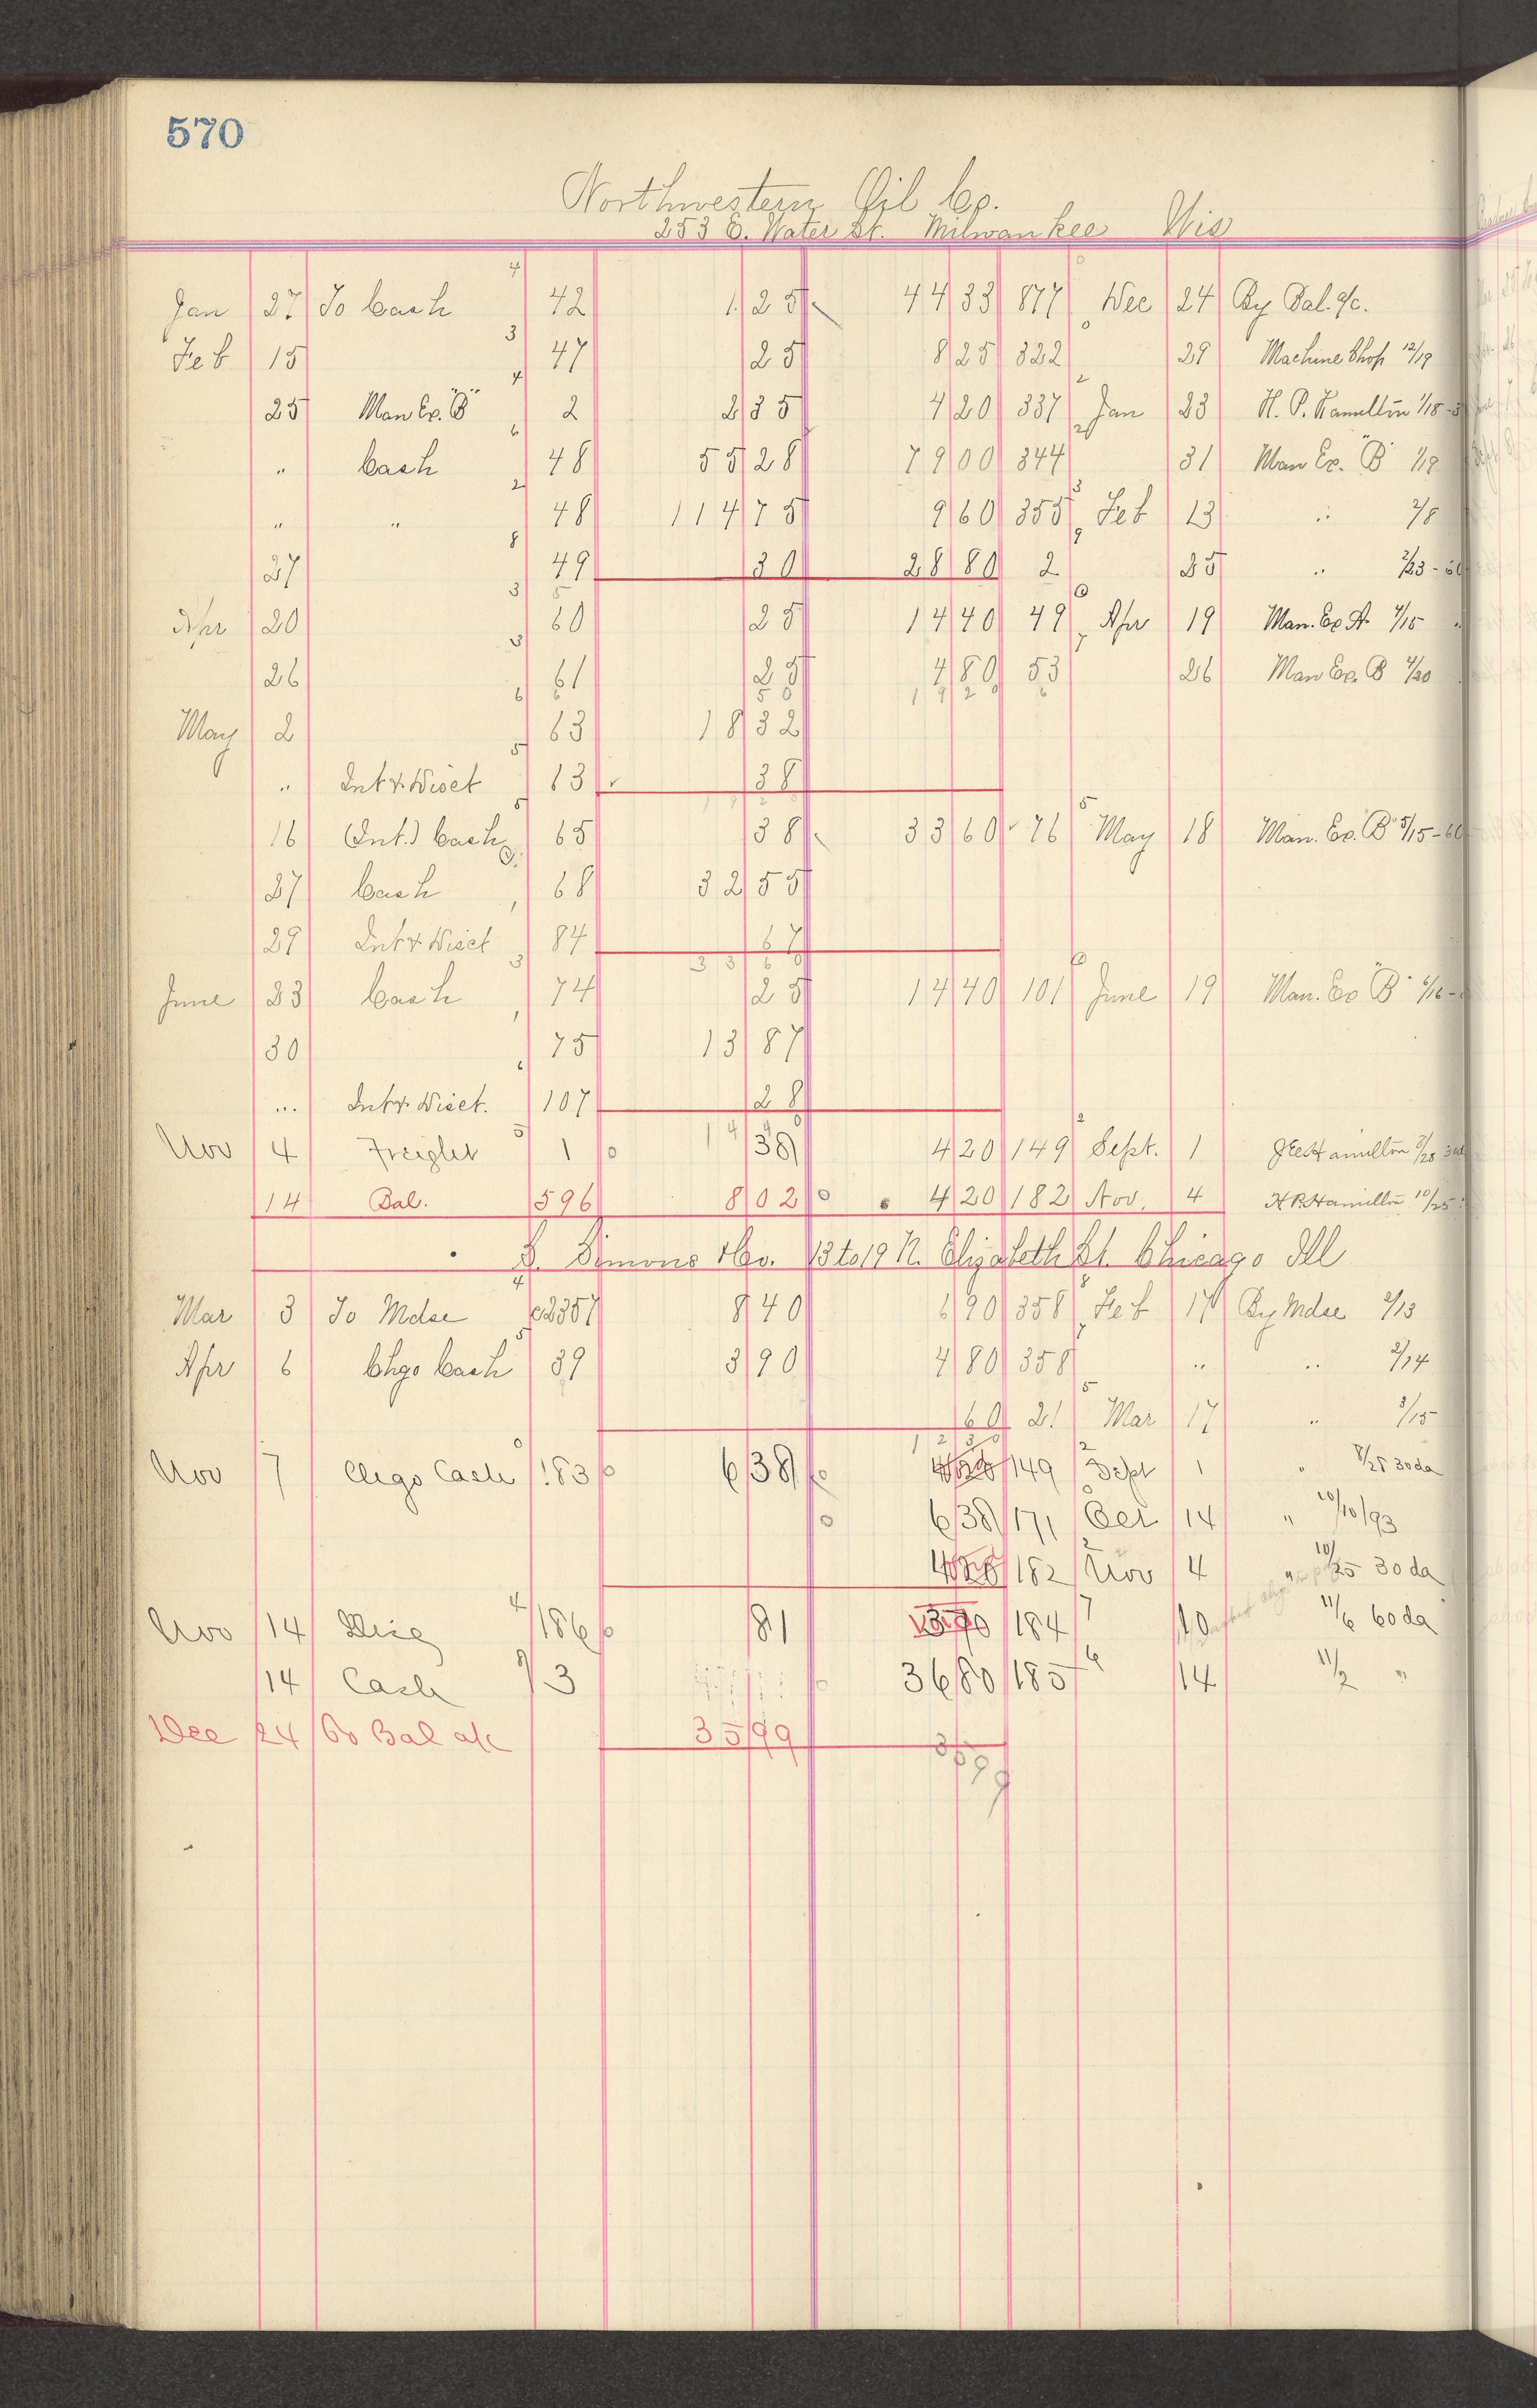 570
Northwestern Oil Co.
253 E. Water St. Milwaukee Wis
Jan 27 To Cash 42 1 25 44 33 877 Dec 24 By Bal. a/c.
Feb 15 47 25 8 25 322 29 Machine Shop 12/19
25 Man Co. "B" 2 2 35 4 20 337 Jan 23 H. P. Hamilton 1/18
" Cash 48 55 28 79 00 344 31 Man Co. "B"
" " 48 114 75 9 60 355 Feb 13 " 2/8
27 49 30 28 80 2 25 " 2/23 - 60
Apr 20 60 25 14 40 49 Apr 19 Man. Co A 4/15
26 61 25 4 80 53 26 Man Co. B 4/20
May 2 63 18 32
" Int & Disct 13 38
16 (Int.) Cash 65 38 33 60 76 May 18 Man. Co. "B" 5/15 - 60
27 Cash 68 32 55
29 Int & Disct 84 67
June 23 Cash 74 25 14 40 101 June 19 Man. Co "B" 6/16
30 75 13 87
" Int & Disct. 107 28
Nov 4 Freight 1 38 4 20 149 Sept. 1 Hamilton 8/28
14 Bal. 596 8 02 4 20 182 Nov. 4 H P. Hamilton 10/25
Simons & Co. 13 to 19 N. Elizabeth St. Chicago Ill
Mar 3 To Mdse 8 40 6 90 358 Feb 17 By Mdse 2/13
Apr 6 Chgo Cash 39 3 90 4 80 358 " " 2/14
60 21 Mar 17 " 3/15
Nov 7 Chgo Cash 183 6 38 4 20 149 Sept 1 " 8/28 30 da
6 38 171 Oct 14 " 10/10/93
4 20 182 Nov 4 " 10/25 30 da
Nov 14 Disc 186 81 184 10 11/6 60 da
14 Cash 3 36 80 185 14 11/2 "
Dec 24 To Bal a/c 35 99